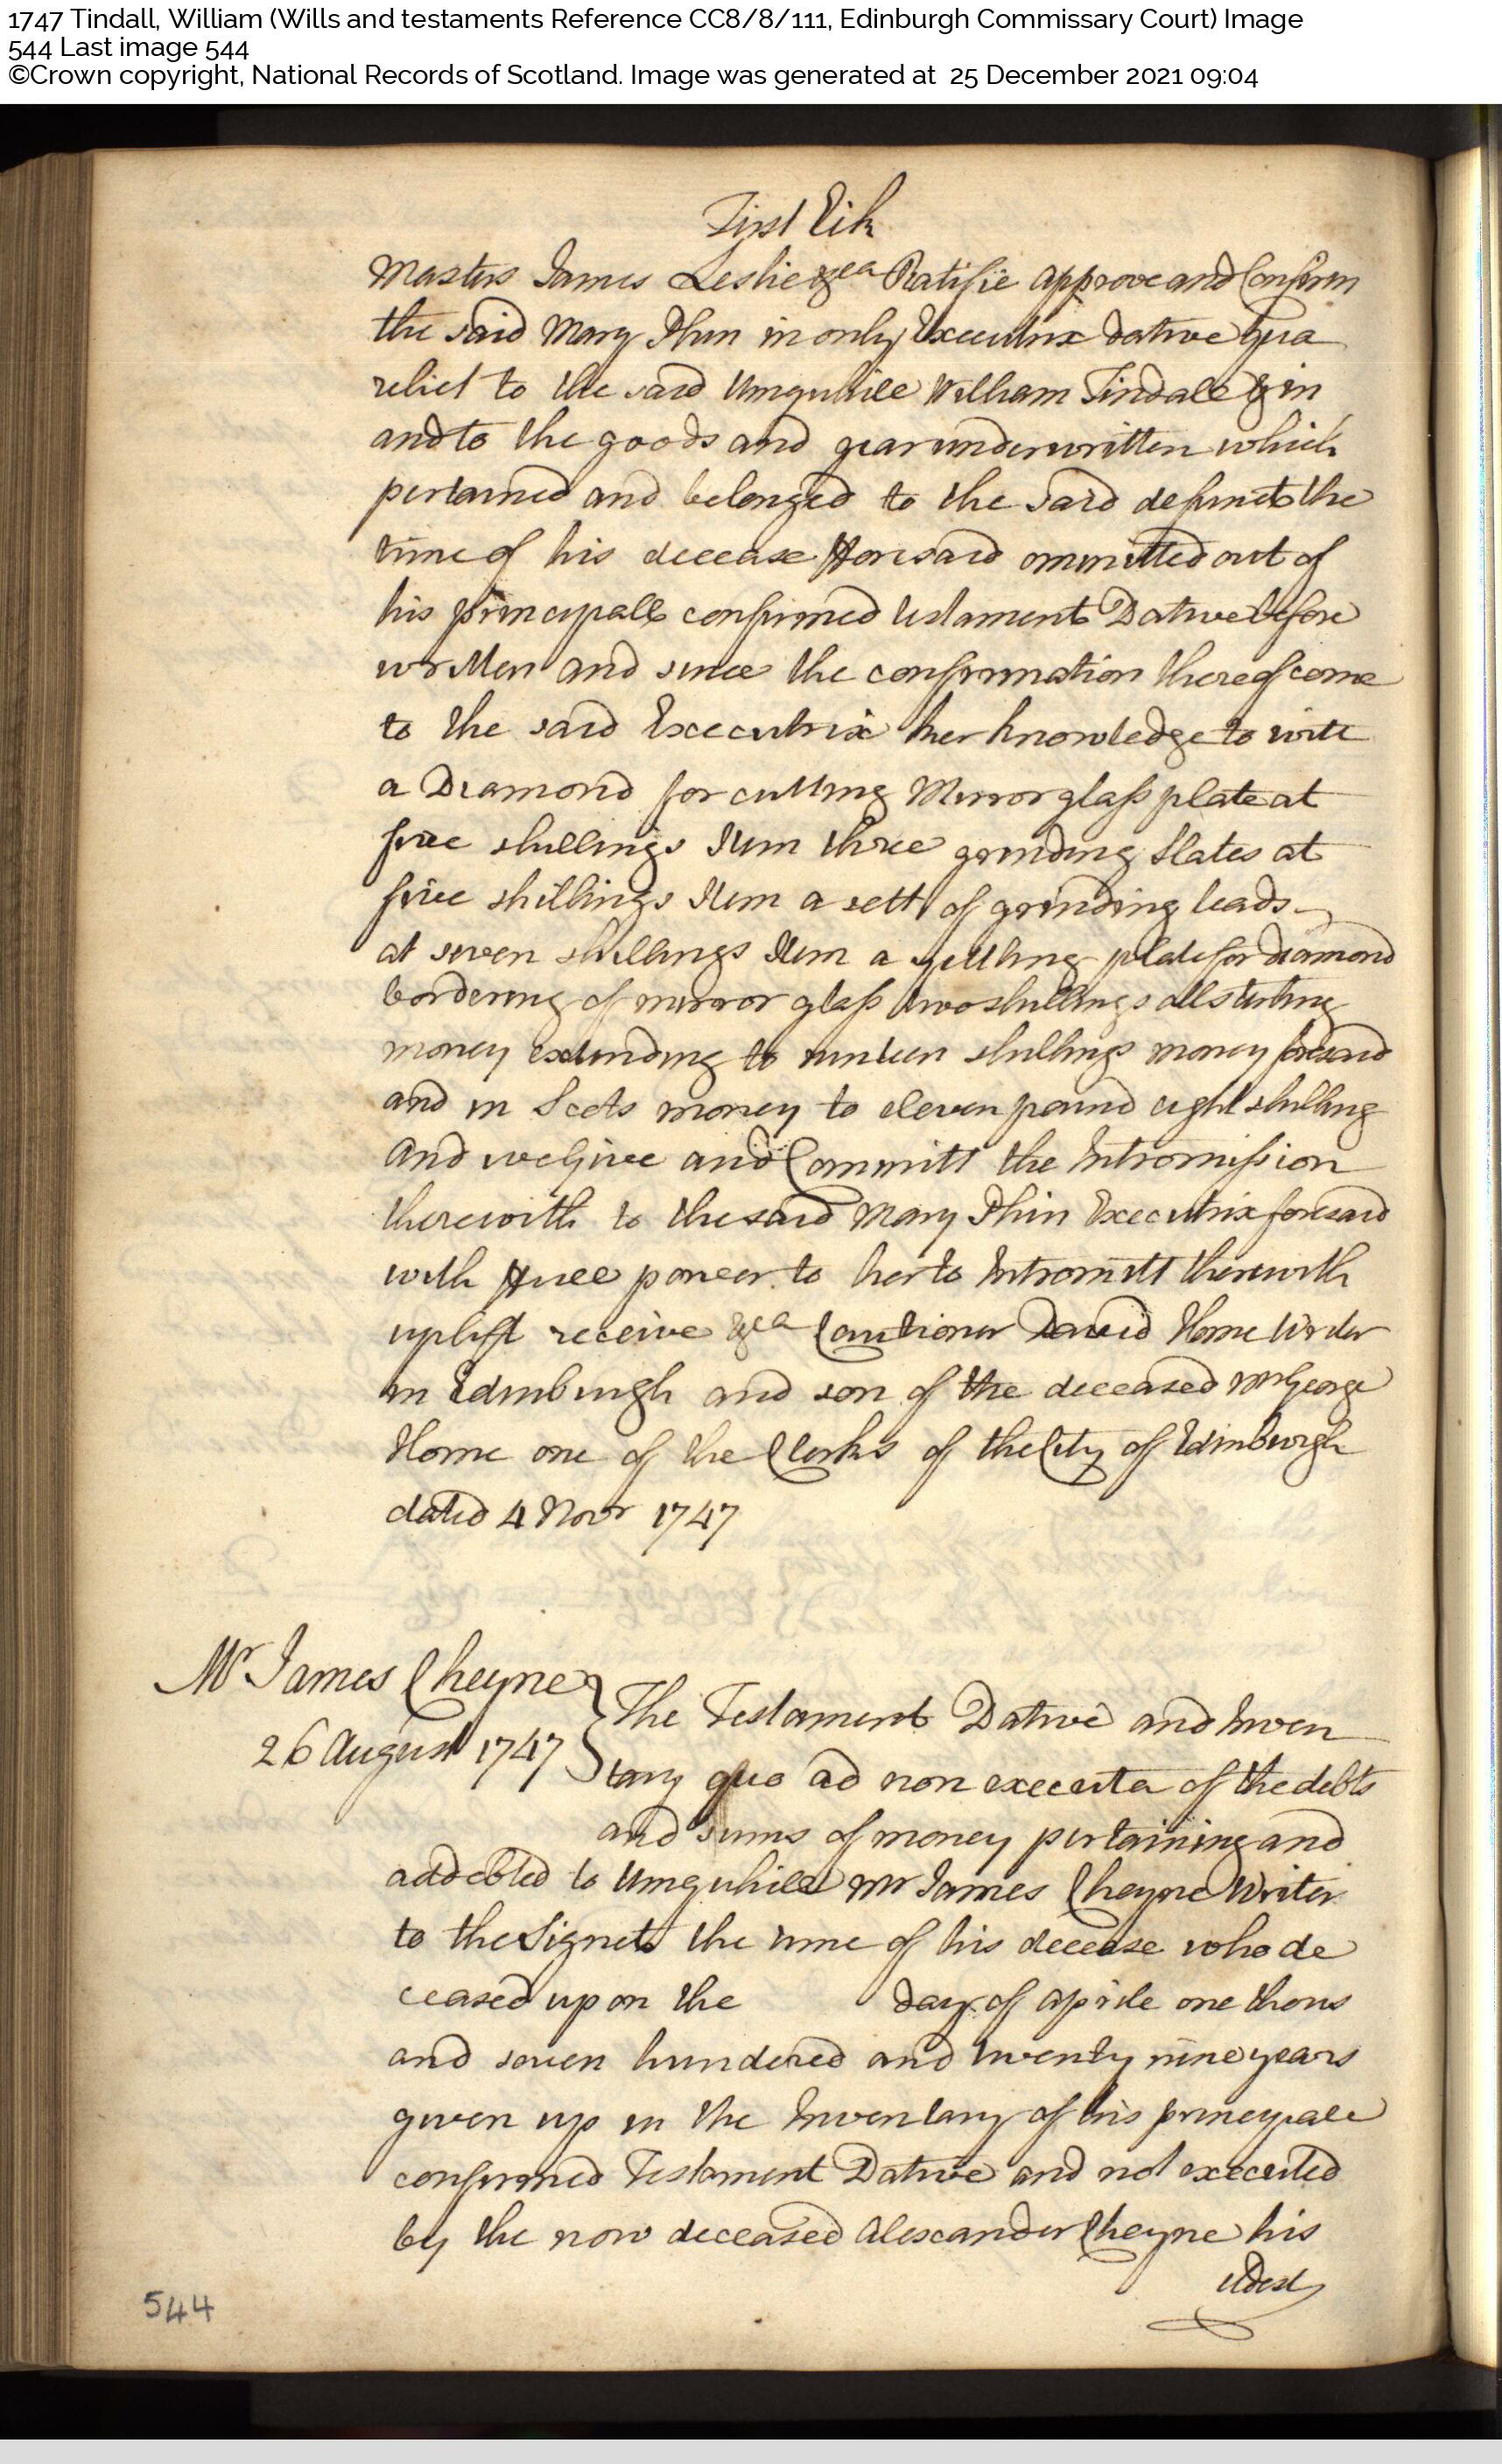 1747 Tindall, William (Wills and testaments Reference CC8/8/111, Edinburgh Commissary Court) Image
544 Last image 544
©Crown copyright, National Records of Scotland. Image was generated at 25 December 2021 09:04
First Eik
Masters James Leslie &ca Ratifie approve and Confirm
the said Mary Phin in only Executrix dative qua
relict to the said Umquhile William Tindall & in
and to the goods and gear underwritten which
pertained and belonged to the said defunct the
time of his decease foresaid ommitted out of
his principall confirmed testament Dative before
written and since the confirmation thereof come
to the said Executrix her knowledge to witt
a Diamond for cutting Mirror glass plate at
five shillings Item three grinding slates at
five shillings Item a sett of grinding leads
at seven shillings Item a plate for diamond
bordering of mirror glass two shillings all sterling
money extending to ninteen shillings money foresaid
and in Scots money to eleven pound eight shilling
And we Give and Committ the Intromission
therewith to the said Mary Phin Executrix foresaid
with full power to her to Intromitt therewith
uplift receive &ca Cautioner David Home Writer
in Edinburgh and son of the deceased Mr George
Home one of the Clerks of the City of Edinburgh
dated 4 Novr 1747
Mr James Cheyne
26 August 1747
The Testament Dative and Inven
tary quo ad non executa of the debts
and sums of money pertaining and
addebted to Umquhile Mr James Cheyne Writer
to the Signet the time of his decease who de
ceased upon the day of aprile one thous
and seven hundered and twenty nine years
given up in the Inventary of his principall
confirmed Testament Dative and not executed
by the now deceased Alexander Cheyne his
eldest
544